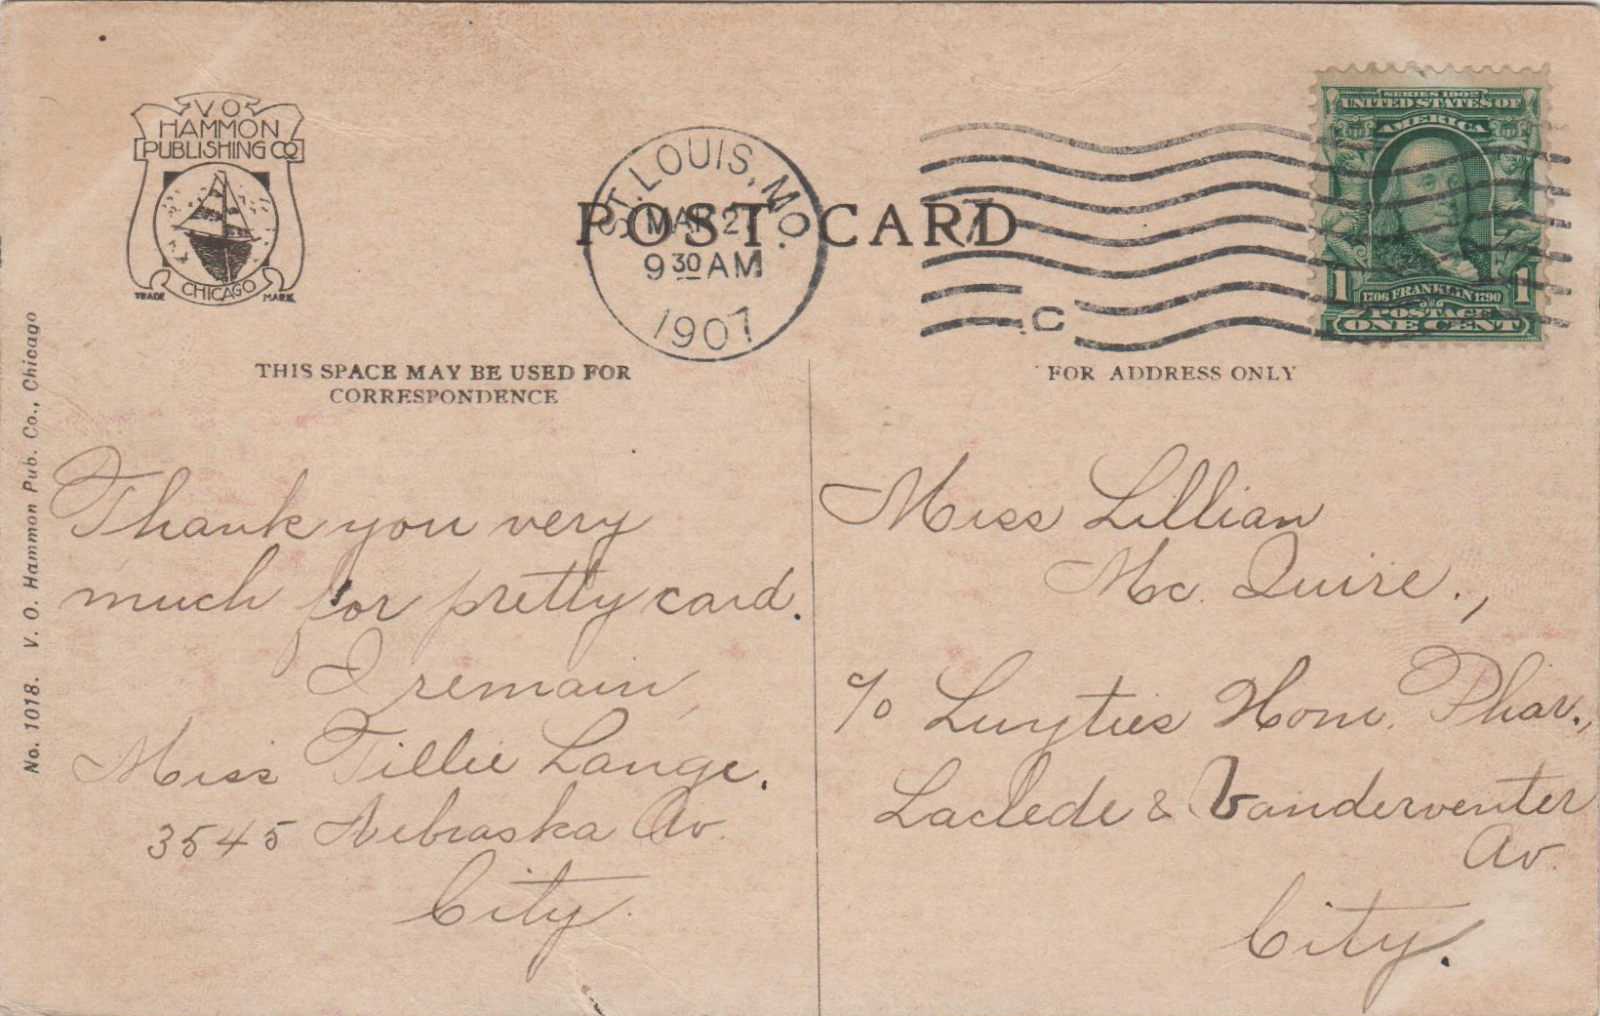 V. O.
HAMMON
PUBLISHING CO
TRADE CHICAGO MARK
POST CARD
ST. LOUIS, MO.
MAR 2
9 30 AM
1907
C
SERIES 1902
UNITED STATES OF
AMERICA
1 1706 FRANKLIN 1790 1
POSTAGE
ONE CENT
THIS SPACE MAY BE USED FOR
CORRESPONDENCE
FOR ADDRESS ONLY
No. 1018. V. O. Hammon Pub. Co., Chicago
Thank you very
much for pretty card.
I remain,
Miss Tillie Lange.
3545 Nebraska Av.
City.
Miss Lillian
Mc. Quire.,
c/o Luyties Hom. Phar.,
Laclede & Vanderventer
Av.
City.